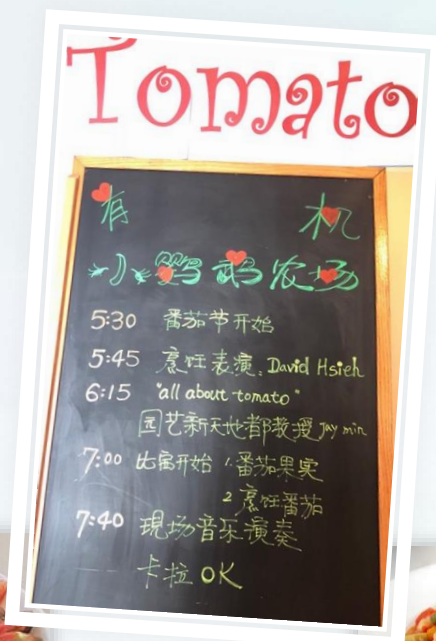 Tomato
有 机
小鹦鹉农场
5:30 番茄节开始
5:45 烹饪表演: David Hsieh
6:15 "all about tomato"
园艺新天地郝教授 Jay min
7:00 比赛开始 1. 番茄果实
2 烹饪番茄
7:40 現场音乐演奏
卡拉OK